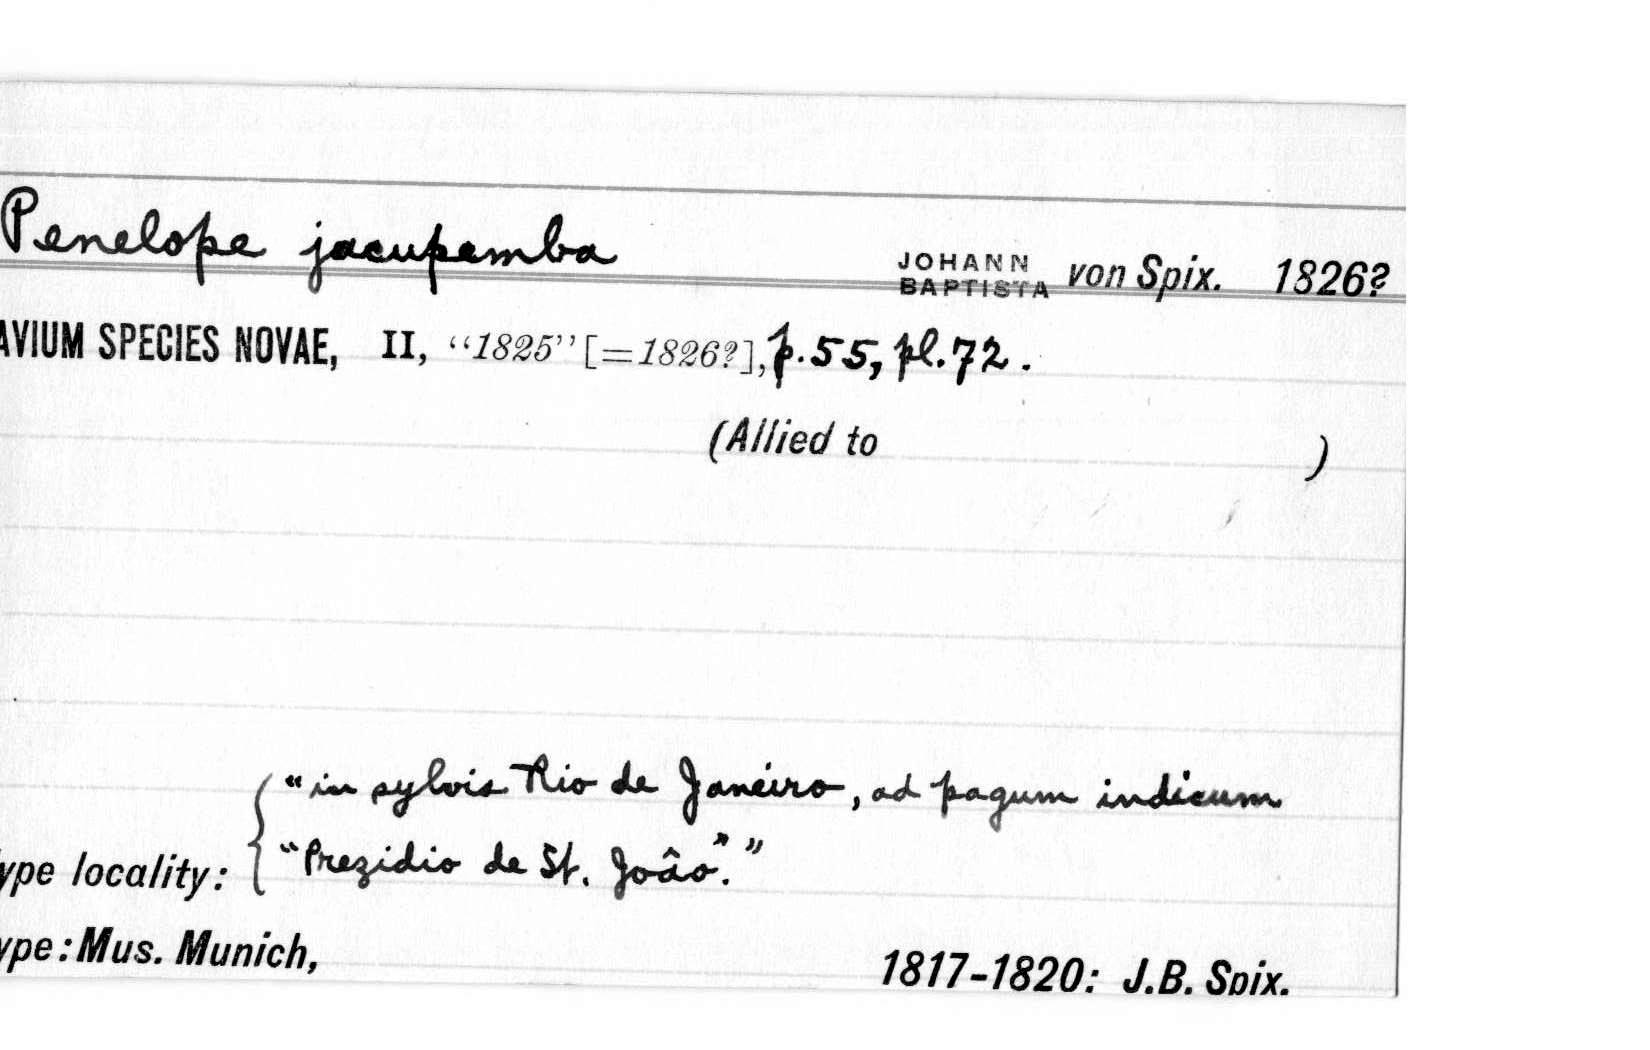 Penelope jacupemba JOHANN BAPTISTA von Spix. 1826?
AVIUM SPECIES NOVAE, II, “1825” [=1826?], p.55, pl.72.
(Allied to )
“in sylvis Rio de Janéiro, ad pagum indicum
ype locality: “Prezidio de St. Joâo”.”
ype: Mus. Munich, 1817-1820: J.B. Spix.